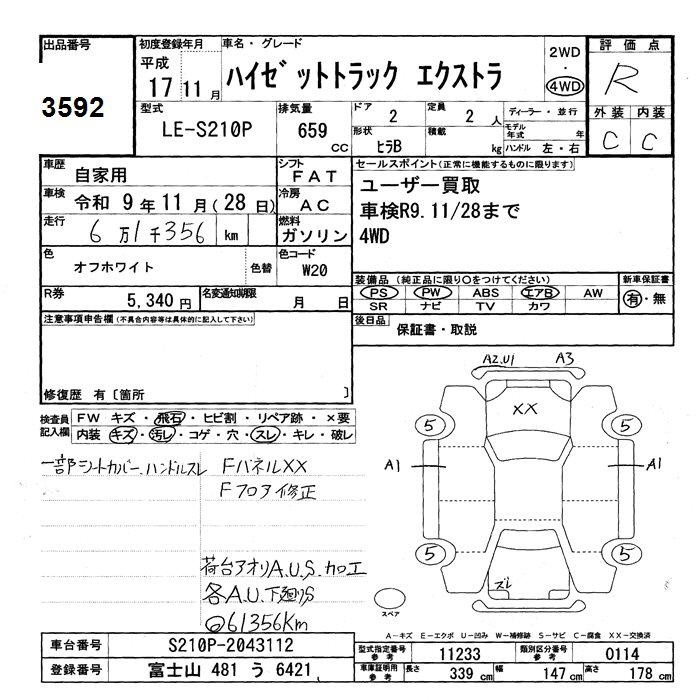 出品番号
3592
初度登録年月
平成
17 11 月
車名・グレード
ハイゼットトラック エクストラ
2WD
・
4WD
評価点
R
型式
LE-S210P
排気量
659
CC
ドア
2
定員
2 人
形状
ヒラB
積載
kg
ディーラー・並行
モデル年式
年
ハンドル 左・右
外装 内装
C C
車歴
自家用
シフト
FAT
車検
令和 9 年 11 月 (28 日)
冷房
AC
走行
6 万 1 千 356 km
燃料
ガソリン
色
オフホワイト
色替
色コード
W20
R券
5,340 円
名変通知期限
月 日
セールスポイント(正常に機能するものに限ります)
ユーザー買取
車検R9.11/28まで
4WD
装備品 (純正品に限り○をつけてください)
PS PW ABS エアB AW
SR ナビ TV カワ
新車保証書
有・無
後日品
保証書・取説
注意事項申告欄(不具合内容等は具体的に記入して下さい)
修復歴 有〔箇所 〕
検査員記入欄
FW キズ・飛石・ヒビ割・リペア跡・×要
内装 キズ・汚レ・コゲ・穴・スレ・キレ・破レ
一部シートカバー、ハンドルスレ
FパネルXX
Fフロア修正
荷台アオリA.U.S.カロエ
各A.U.下廻りS
◎61356Km
A2.U1 A3
XX
5 5
A1 A1
5 5
ズレ
スペア
A-キズ E-エクボ U-凹み W-補修跡 S-サビ C-腐食 XX-交換済
車台番号
S210P-2043112
登録番号
富士山 481 う 6421
型式指定番号
参考
11233
類別区分番号
参考
0114
車庫証明用
参考
長さ
339 cm
幅
147 cm
高さ
178 cm